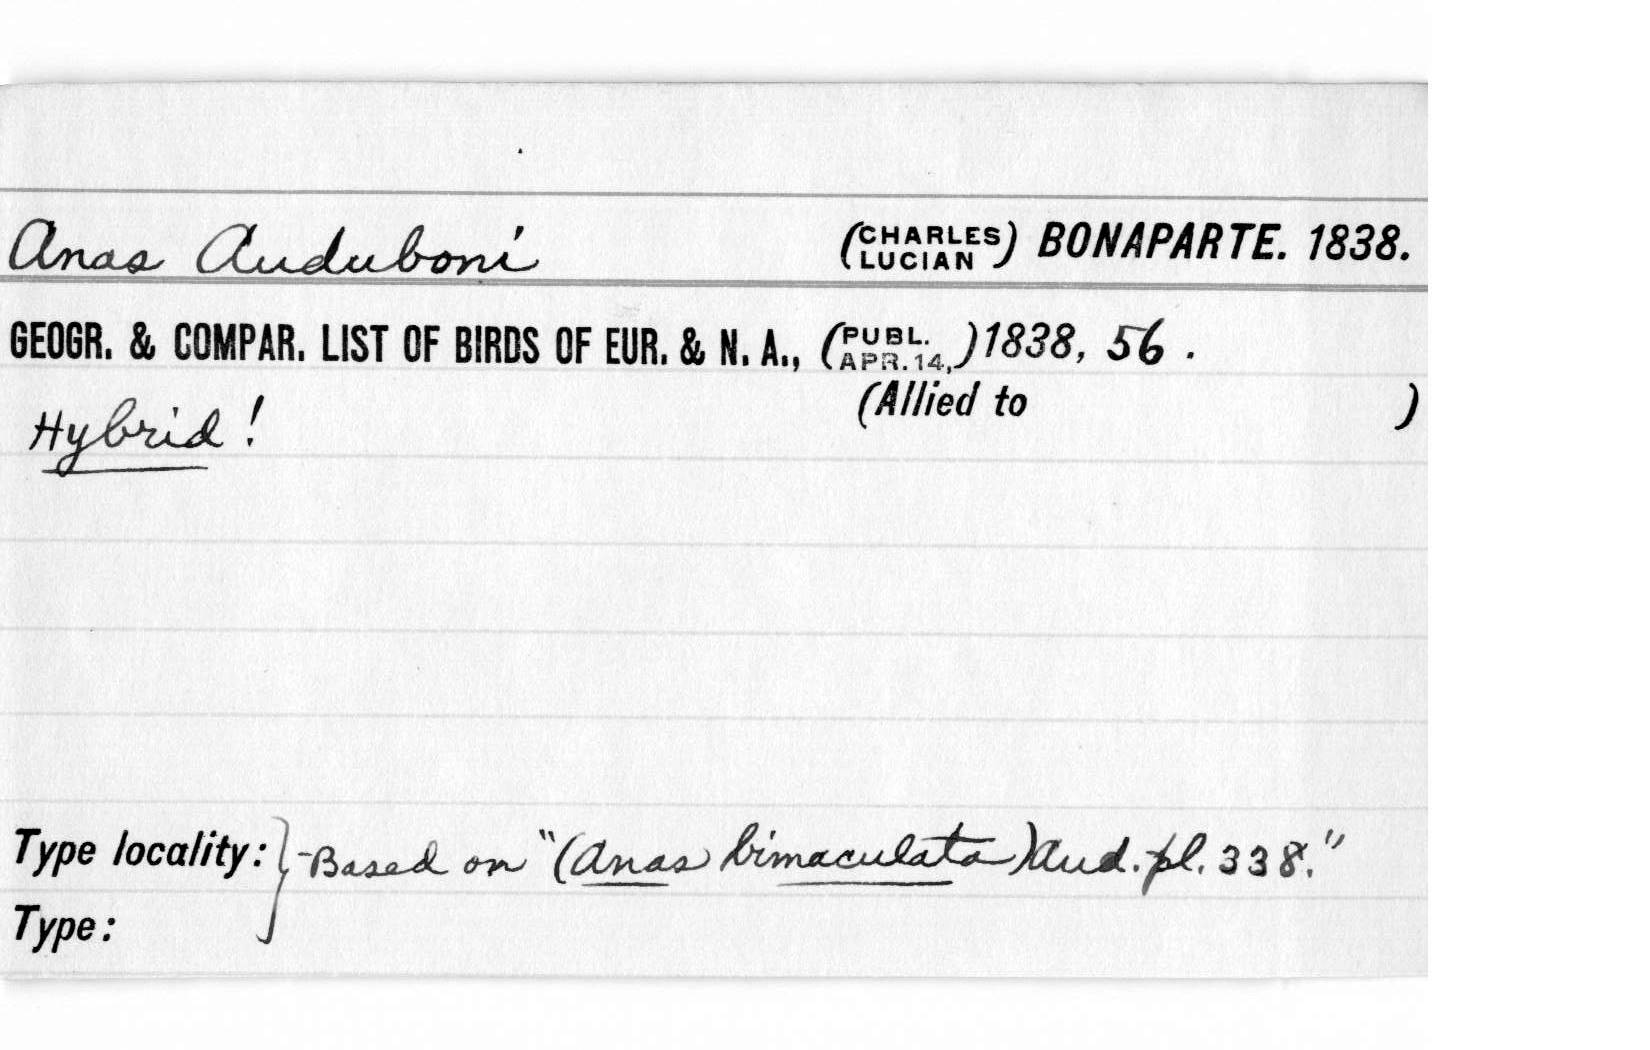 Anas Auduboni (CHARLES LUCIAN) BONAPARTE. 1838.
GEOGR. & COMPAR. LIST OF BIRDS OF EUR. & N. A., (PUBL. APR. 14,) 1838, 56.
Hybrid! (Allied to )
Type locality: } -Based on "(Anas bimaculata) Aud. pl. 338."
Type: